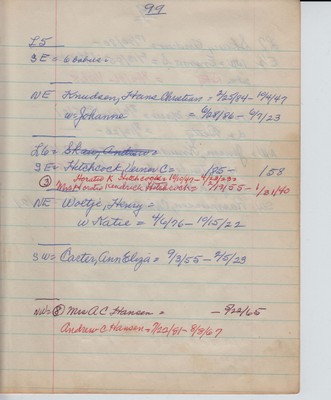 99
L5
SE = 
NE Knudsen, Hans Christian = 2/25/84 - 10/4/47
w = Johanne = 6/28/86 - 9/7/23
L6 = Shaw, Andrew =
SE = Hitchcock, = /85 - /58
③ Horatio K. Hitchcock =
Mrs Horatio Kendrick Hitchcock = /19/55 - 1/31/40
NE Woltje, Henry =
w Katie = 4/6/76 - 10/15/22
SW = Carter, Ann Eliza = 9/3/55 - 2/5/23
NW = ③ Mrs A C Hansen = - 9/22/65
Andrew C Hansen = 7/22/81 - 8/8/67